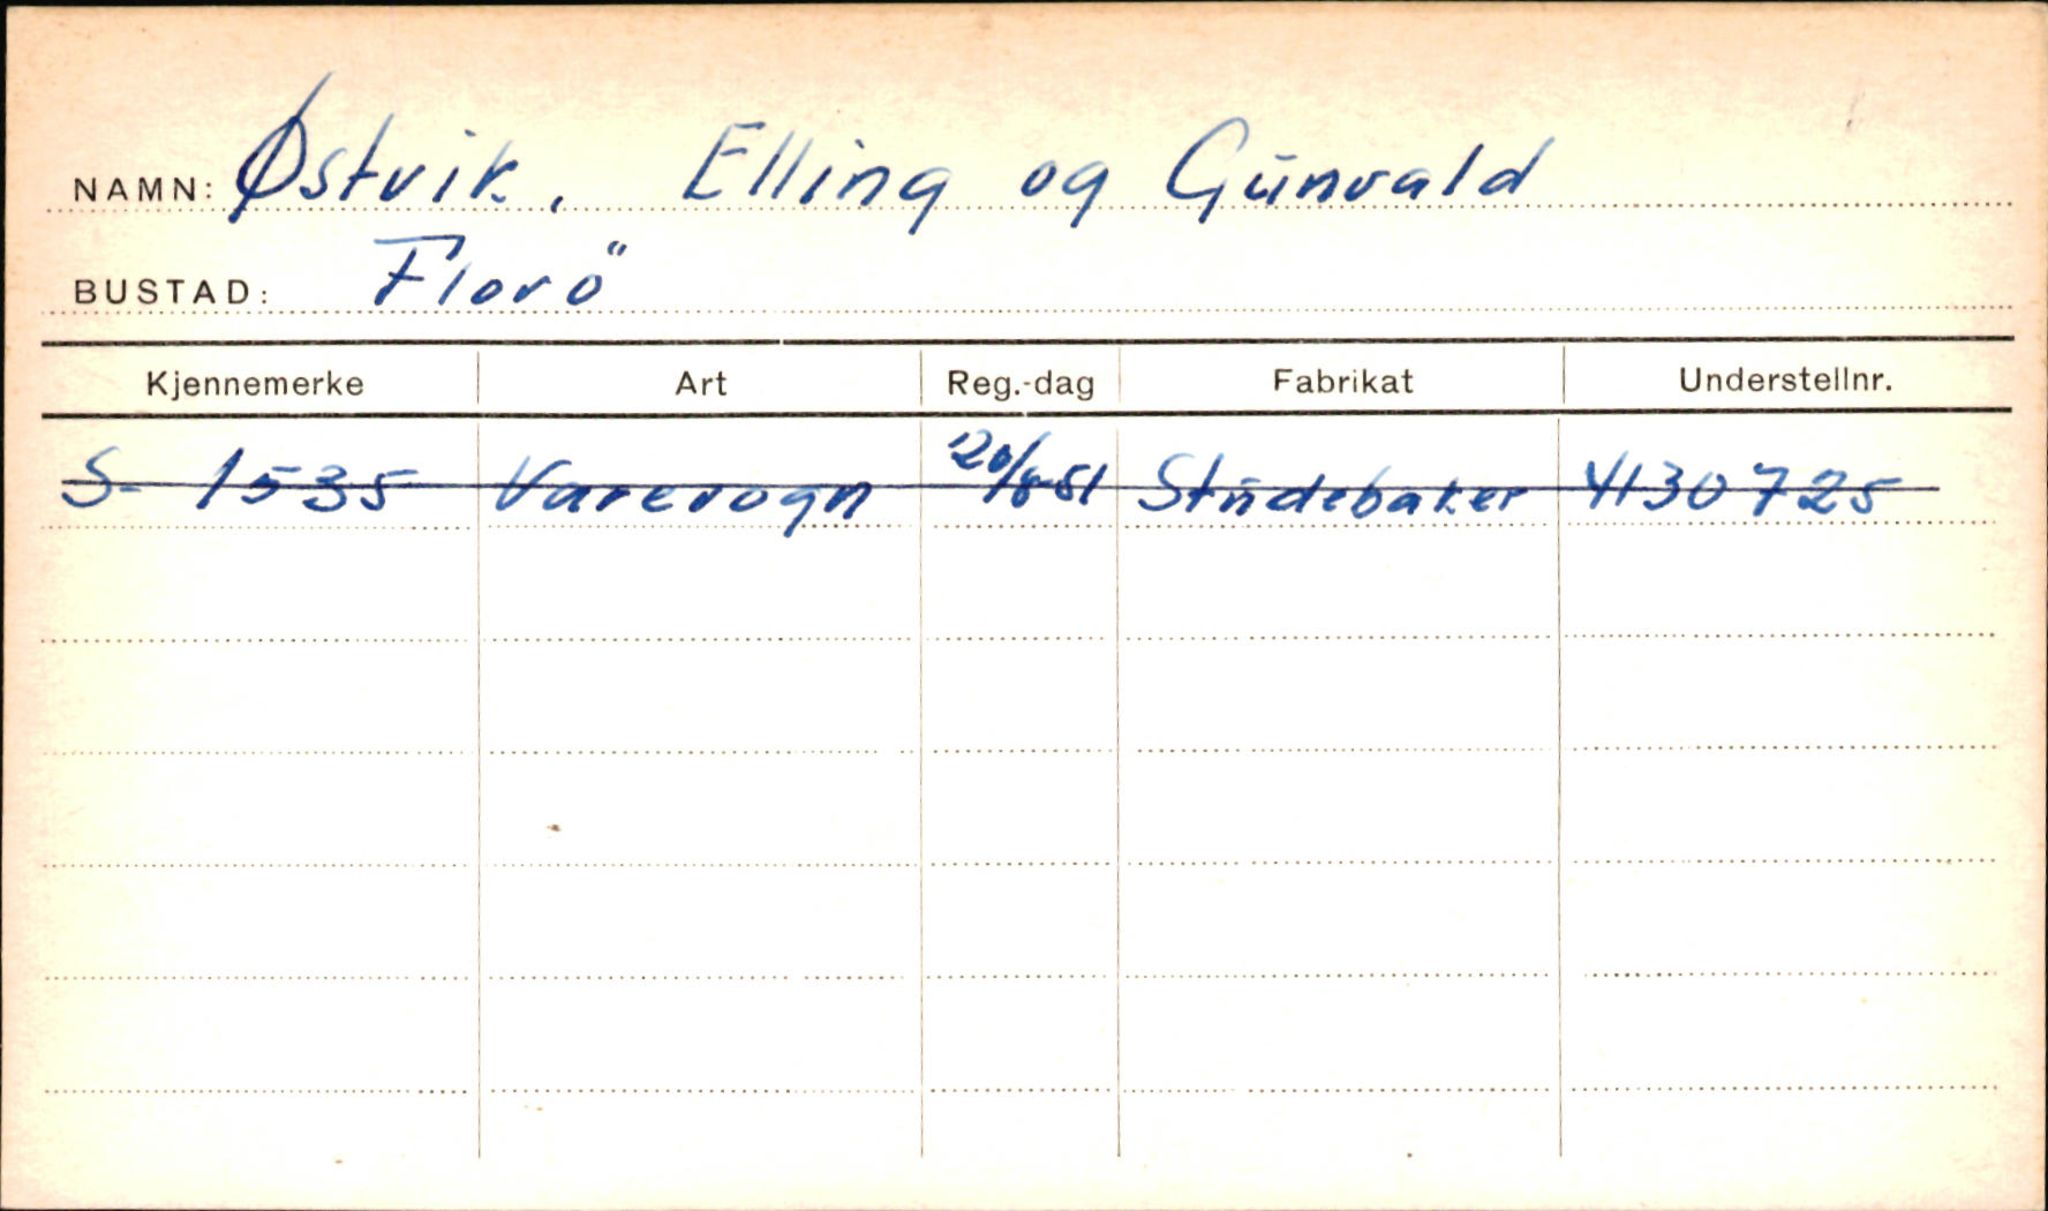 NAMN: Østvik, Elling og Gunvald
BUSTAD: Florö
Kjennemerke Art Reg.-dag Fabrikat Understellnr.
S- 1535 Varevogn 20/8-51 Studebaker 4130725